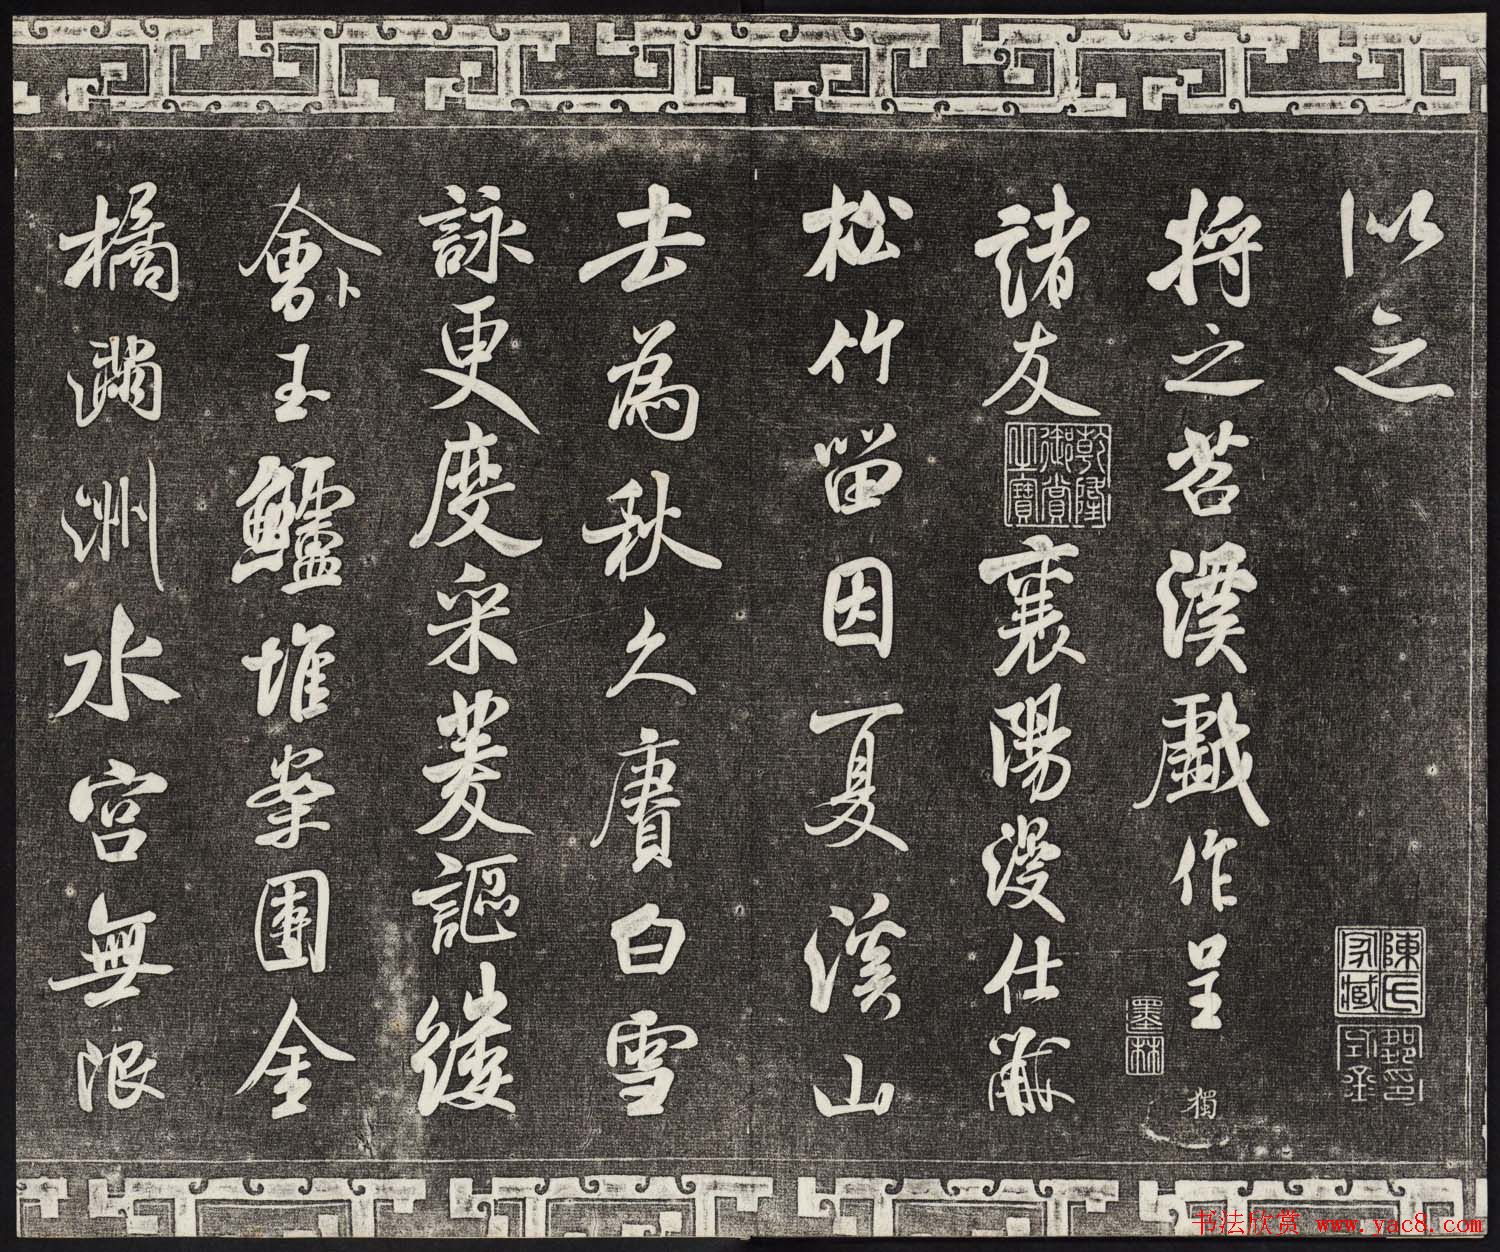 以之
將之苕溪戲作呈
諸友 襄陽漫仕黻
松竹留因夏溪山
去為秋久賡白雪
詠更度采菱謳縷
會玉鱸堆案團金
橘滿洲水宮無限
卜
獨
乾隆御賞之寶
墨林
陳氏家藏
书法欣赏 www.yac8.com